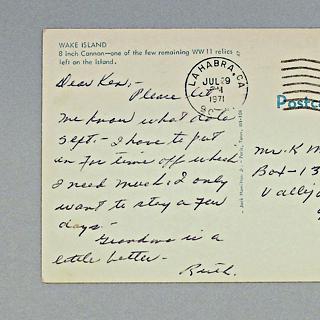 WAKE ISLAND
8 inch Cannon—one of the few remaining WW11 relics
left on the island.
Dear Ken,-
Please let
me know what date
Sept.- I have to put
in for time off which
I need much. I only
want to stay a few
days.-
Grandma is a
little better.-
Ruth.
LA HABRA, CA
JUL 29
PM
1971
Postc
Mr. K M
Box-13
Vallej